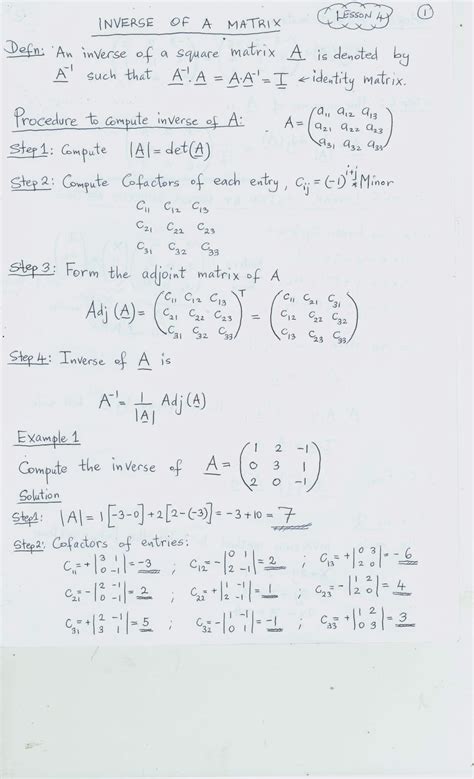 INVERSE OF A MATRIX
LESSON 4
1
Defn: An inverse of a square matrix A is denoted by
A⁻¹ such that A⁻¹.A = A.A⁻¹ = I ← identity matrix.
Procedure to compute inverse of A: A = (a₁₁ a₁₂ a₁₃
a₂₁ a₂₂ a₂₃
a₃₁ a₃₂ a₃₃)
Step 1: Compute |A| = det(A)
Step 2: Compute Cofactors of each entry, Cᵢⱼ = (-1)^{i+j} * Minor
C₁₁ C₁₂ C₁₃
C₂₁ C₂₂ C₂₃
C₃₁ C₃₂ C₃₃
Step 3: Form the adjoint matrix of A
Adj (A) = (C₁₁ C₁₂ C₁₃)ᵀ = (C₁₁ C₂₁ C₃₁)
(C₂₁ C₂₂ C₂₃) (C₁₂ C₂₂ C₃₂)
(C₃₁ C₃₂ C₃₃) (C₁₃ C₂₃ C₃₃)
Step 4: Inverse of A is
A⁻¹ = 1/|A| Adj(A)
Example 1
Compute the inverse of A = (1 2 -1
0 3 1
2 0 -1)
Solution
Step1: |A| = 1[-3-0] + 2[2-(-3)] = -3 + 10 = 7
Step2: Cofactors of entries:
C₁₁ = +|3 1; 0 -1| = -3 ; C₁₂ = -|0 1; 2 -1| = 2 ; C₁₃ = +|0 3; 2 0| = -6
C₂₁ = -|2 -1; 0 -1| = 2 ; C₂₂ = +|1 -1; 2 -1| = 1 ; C₂₃ = -|1 2; 2 0| = 4
C₃₁ = +|2 -1; 3 1| = 5 ; C₃₂ = -|1 -1; 0 1| = -1 ; C₃₃ = +|1 2; 0 3| = 3